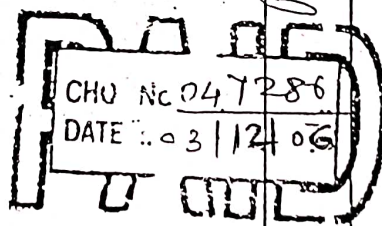 CHQ No 047286
DATE :. 03/12/06